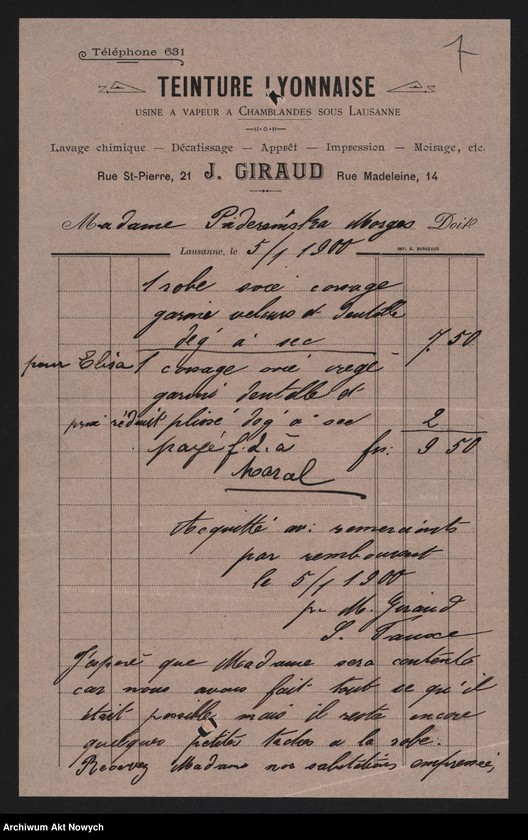 7
Téléphone 631
TEINTURE LYONNAISE
USINE A VAPEUR A CHAMBLANDES SOUS LAUSANNE
Lavage chimique — Décatissage — Apprêt — Impression — Moirage, etc.
Rue St-Pierre, 21 J. GIRAUD Rue Madeleine, 14
Madame Paderewska Morges Doit
IMP. A. BORGEAUD
Lausanne, le 5/1 1900
1 robe soie corsage
garnie velours et dentelle
dég' à sec 7 50
pour Elisa 1 corsage soie
garni dentelle et
prix réduit plissé dég' à sec 2
payé f. d. à frs: 9 50
Acquitté av: remerciments
par remboursnt
le 5/1 1900
pr M. Giraud
J'esperé que Madame sera contente
car nous avons fait tout ce qu'il
était possible mais il reste encore
quelques petites taches a la robe.
Recevez Madame nos salutations empressées,
Archiwum Akt Nowych